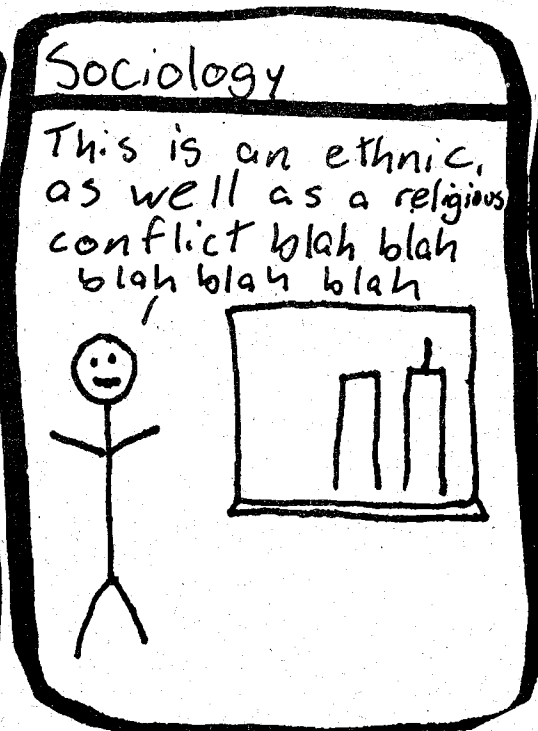 Sociology
This is an ethnic,
as well as a religious
conflict blah blah
blah blah blah